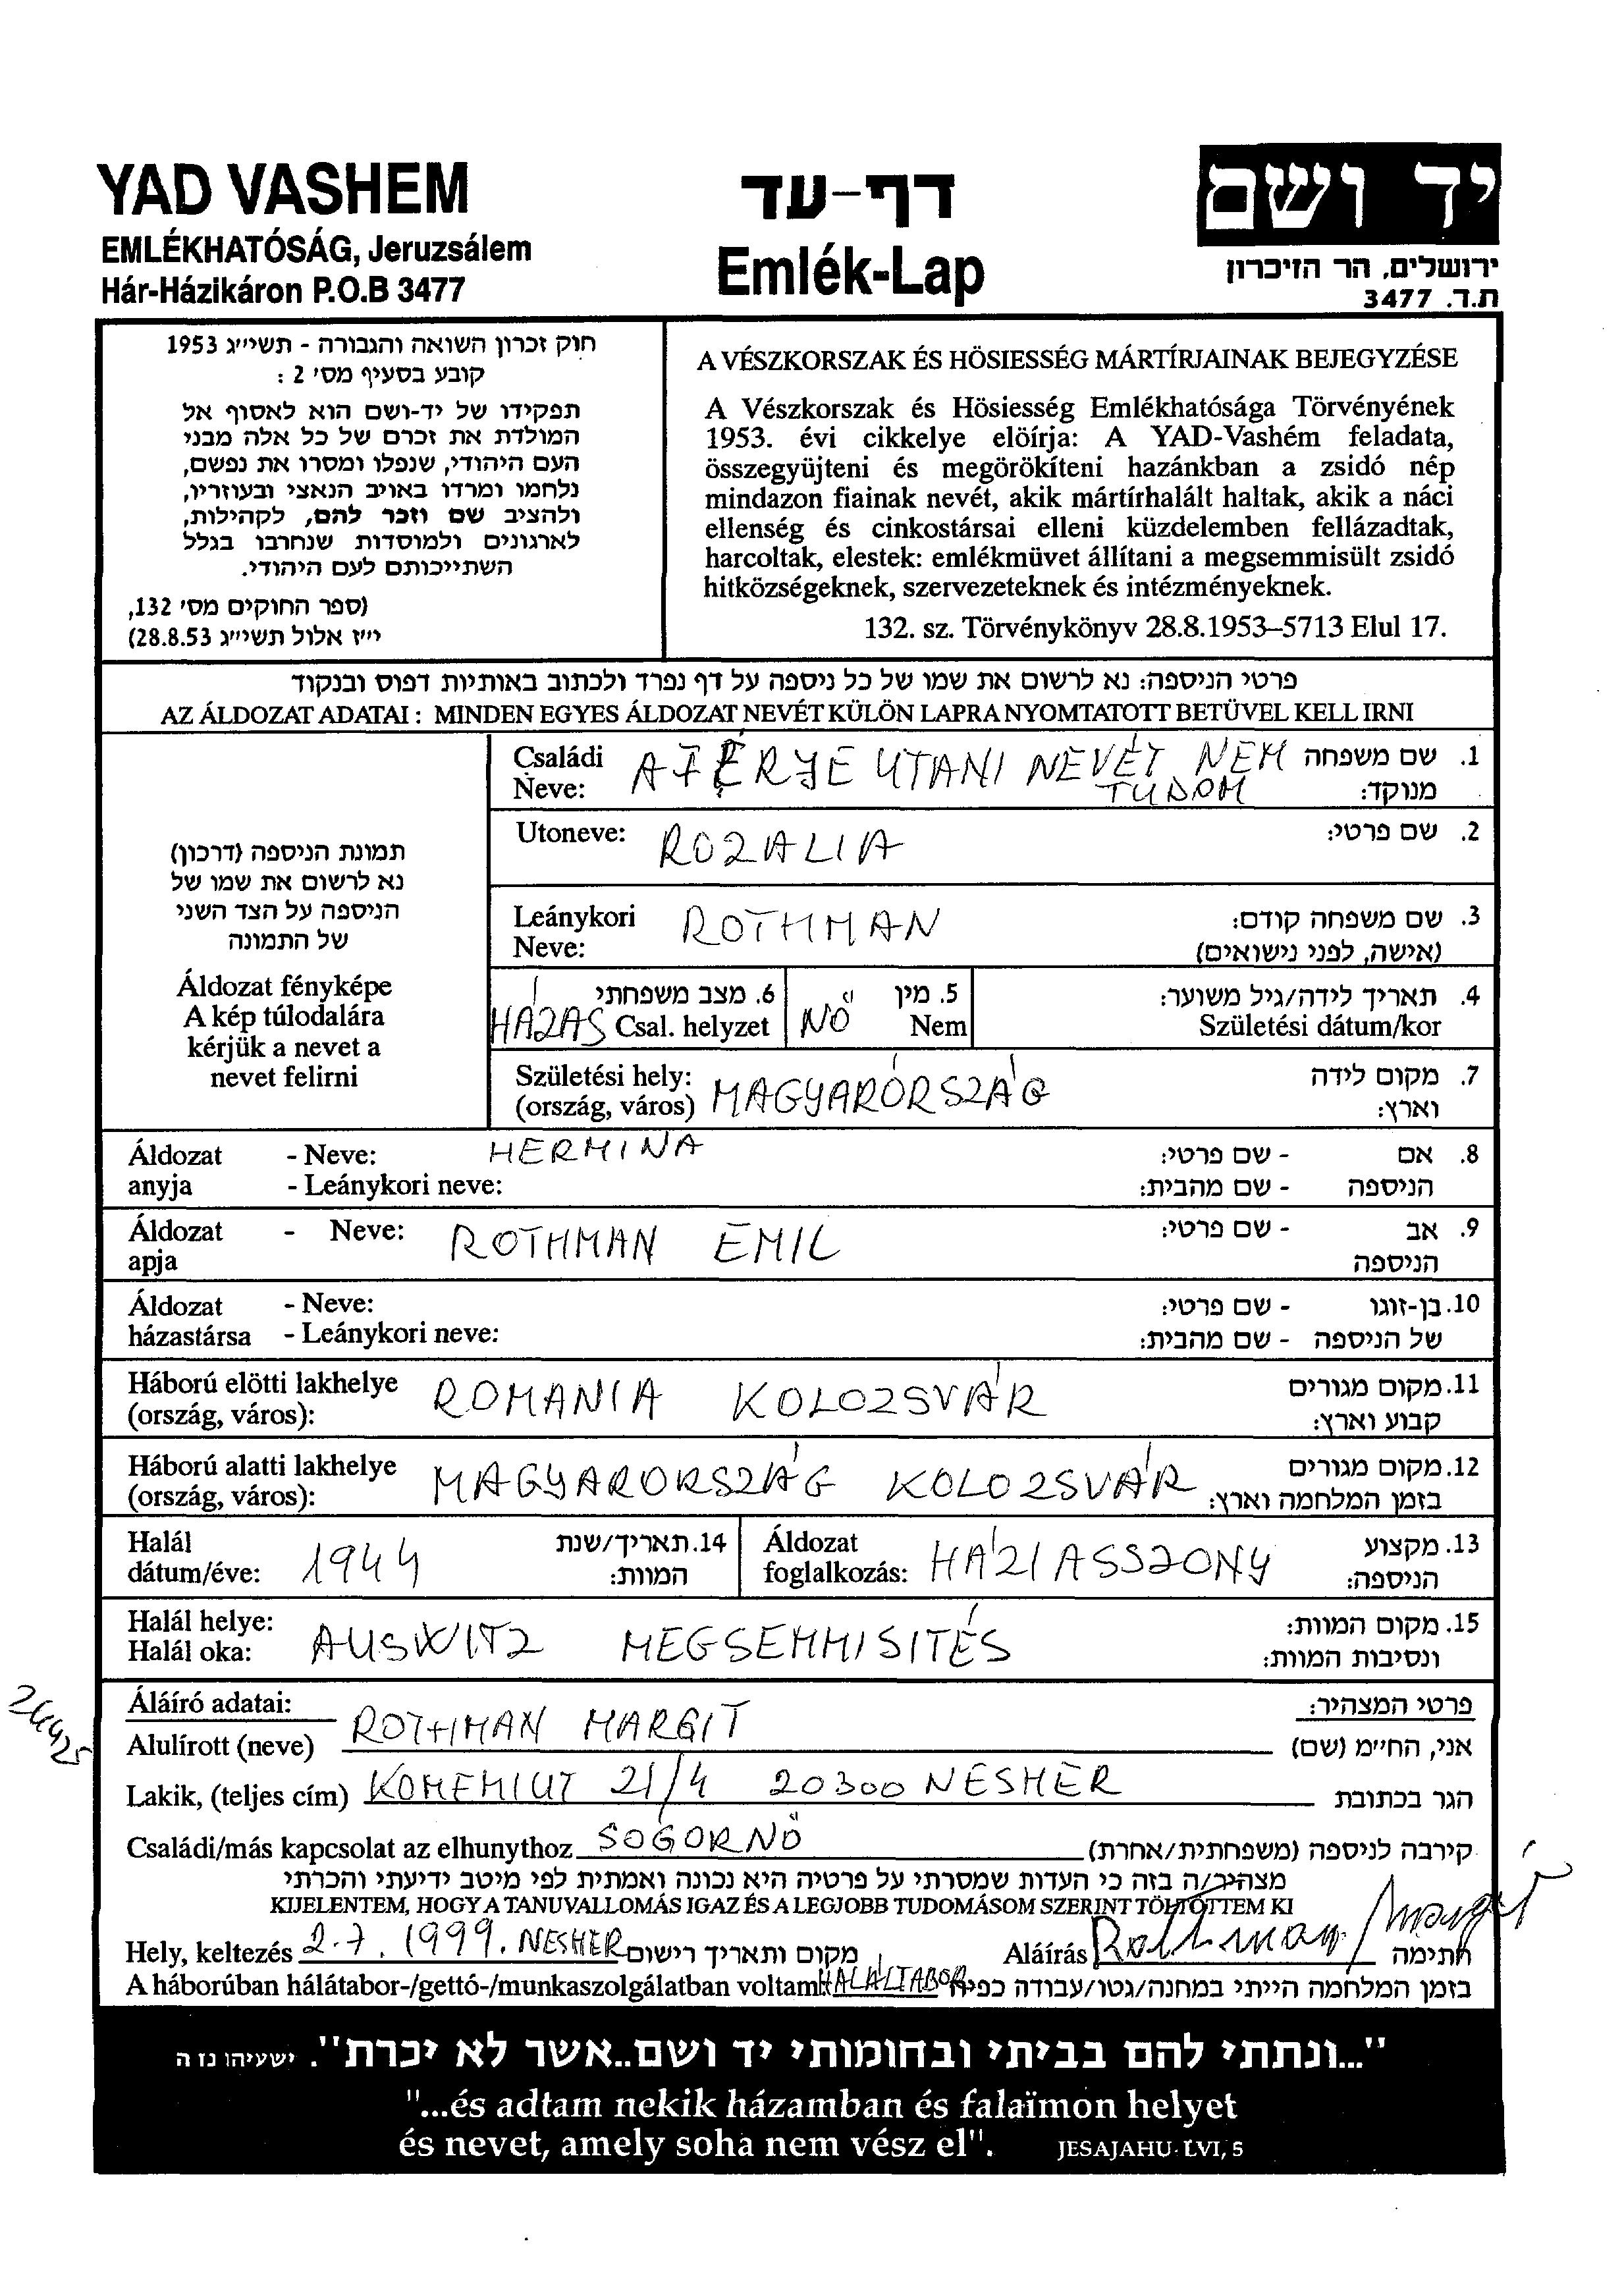 YAD VASHEM
EMLÉKHATÓSÁG, Jeruzsálem
Hár-Házikáron P.O.B 3477
דף-עד
Emlék-Lap
יד ושם
ירושלים, הר הזיכרון
ת.ד. 3477
חוק זכרון השואה והגבורה - תשי״ג 1953
קובע בסעיף מס׳ 2 :
תפקידו של יד-ושם הוא לאסוף אל
המולדת את זכרם של כל אלה מבני
העם היהודי, שנפלו ומסרו את נפשם,
נלחמו ומרדו באויב הנאצי ובעוזריו,
ולהציב שם וזכר להם, לקהילות,
לארגונים ולמוסדות שנחרבו בגלל
השתייכותם לעם היהודי.
(ספר החוקים מס׳ 132,
י״ז אלול תשי״ג 28.8.53)
A VÉSZKORSZAK ÉS HÖSIESSÉG MÁRTÍRJAINAK BEJEGYZÉSE
A Vészkorszak és Hösiesség Emlékhatósága Törvényének
1953. évi cikkelye elöírja: A YAD-Vashém feladata,
összegyüjteni és megörökíteni hazánkban a zsidó nép
mindazon fiainak nevét, akik mártírhalált haltak, akik a náci
ellenség és cinkostársai elleni küzdelemben fellázadtak,
harcoltak, elestek: emlékmüvet állítani a megsemmisült zsidó
hitközségeknek, szervezeteknek és intézményeknek.
132. sz. Törvénykönyv 28.8.1953–5713 Elul 17.
פרטי הניספה: נא לרשום את שמו של כל ניספה על דף נפרד ולכתוב באותיות דפוס ובנקוד
AZ ÁLDOZAT ADATAI : MINDEN EGYES ÁLDOZAT NEVÉT KÜLÖN LAPRA NYOMTATOTT BETÜVEL KELL IRNI
תמונת הניספה (דרכון)
נא לרשום את שמו של
הניספה על הצד השני
של התמונה
Áldozat fényképe
A kép túlodalára
kérjük a nevet a
nevet felirni
Családi A FÉRJE UTANI NEVÉT NEM 1. שם משפחה
Neve: TUDOM מנוקד:
Utoneve: ROZALIA 2. שם פרטי:
Leánykori ROTHMAN 3. שם משפחה קודם:
Neve: (אישה, לפני נישואים)
6. מצב משפחתי 5. מין 4. תאריך לידה/גיל משוער:
HÁZAS Csal. helyzet NŐ Nem Születési dátum/kor
Születési hely: MAGYARÓRSZÁG 7. מקום לידה
(ország, város) וארץ:
Áldozat - Neve: HERMINA 8. אם - שם פרטי:
anyja - Leánykori neve: הניספה - שם מהבית:
Áldozat - Neve: ROTHMAN EMIL 9. אב - שם פרטי:
apja הניספה
Áldozat - Neve: 10. בן-זוגו - שם פרטי:
házastársa - Leánykori neve: של הניספה - שם מהבית:
Háború elötti lakhelye ROMANIA KOLOZSVÁR 11. מקום מגורים
(ország, város): קבוע וארץ:
Háború alatti lakhelye MAGYARORSZÁG KOLOZSVÁR 12. מקום מגורים
(ország, város): בזמן המלחמה וארץ:
Halál 1944 14. תאריך/שנת Áldozat HÁZIASSZONY 13. מקצוע
dátum/éve: המוות: foglalkozás: הניספה:
Halál helye: AUSWITZ MEGSEMMISITÉS 15. מקום המוות:
Halál oka: ונסיבות המוות:
26425
Áláíró adatai: פרטי המצהיר:
Alulírott (neve) ROTHMAN MARGIT אני, הח״מ (שם)
Lakik, (teljes cím) KOMEMIUT 21/4 20300 NESHER הגר בכתובת
Családi/más kapcsolat az elhunythoz SOGORNŐ קירבה לניספה (משפחתית/אחרת)
מצהיר/ה בזה כי העדות שמסרתי על פרטיה היא נכונה ואמתית לפי מיטב ידיעתי והכרתי
KIJELENTEM, HOGY A TANUVALLOMÁS IGAZ ÉS A LEGJOBB TUDOMÁSOM SZERINT TÖLTÖTTEM KI
Hely, keltezés 2.7.1999. NESHER מקום ותאריך רישום Aláírás Rothman Margit חתימה
A háborúban hálátabor-/gettó-/munkaszolgálatban voltam: HALÁLTABOR בזמן המלחמה הייתי במחנה/גטו/עבודה כפייה
"...ונתתי להם בביתי ובחומותי יד ושם..אשר לא יכרת". ישעיהו נז ה
"...és adtam nekik házamban és falaïmon helyet
és nevet, amely soha nem vész el". JESAJAHU- LVI, 5